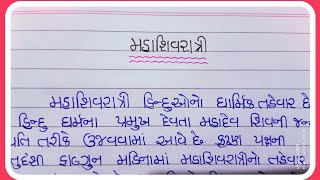 મહાશિવરાત્રી
મહાશિવરાત્રી હિન્દુઓનો ધાર્મિક તહેવાર છે
હિન્દુ ધર્મના પ્રમુખ દેવતા મહાદેવ શિવની જન્મ
તરીકે ઉજવવામાં આવે છે. કૃષ્ણ પક્ષની
ફાલ્ગુન મહિનામાં મહાશિવરાત્રીનો તહેવાર